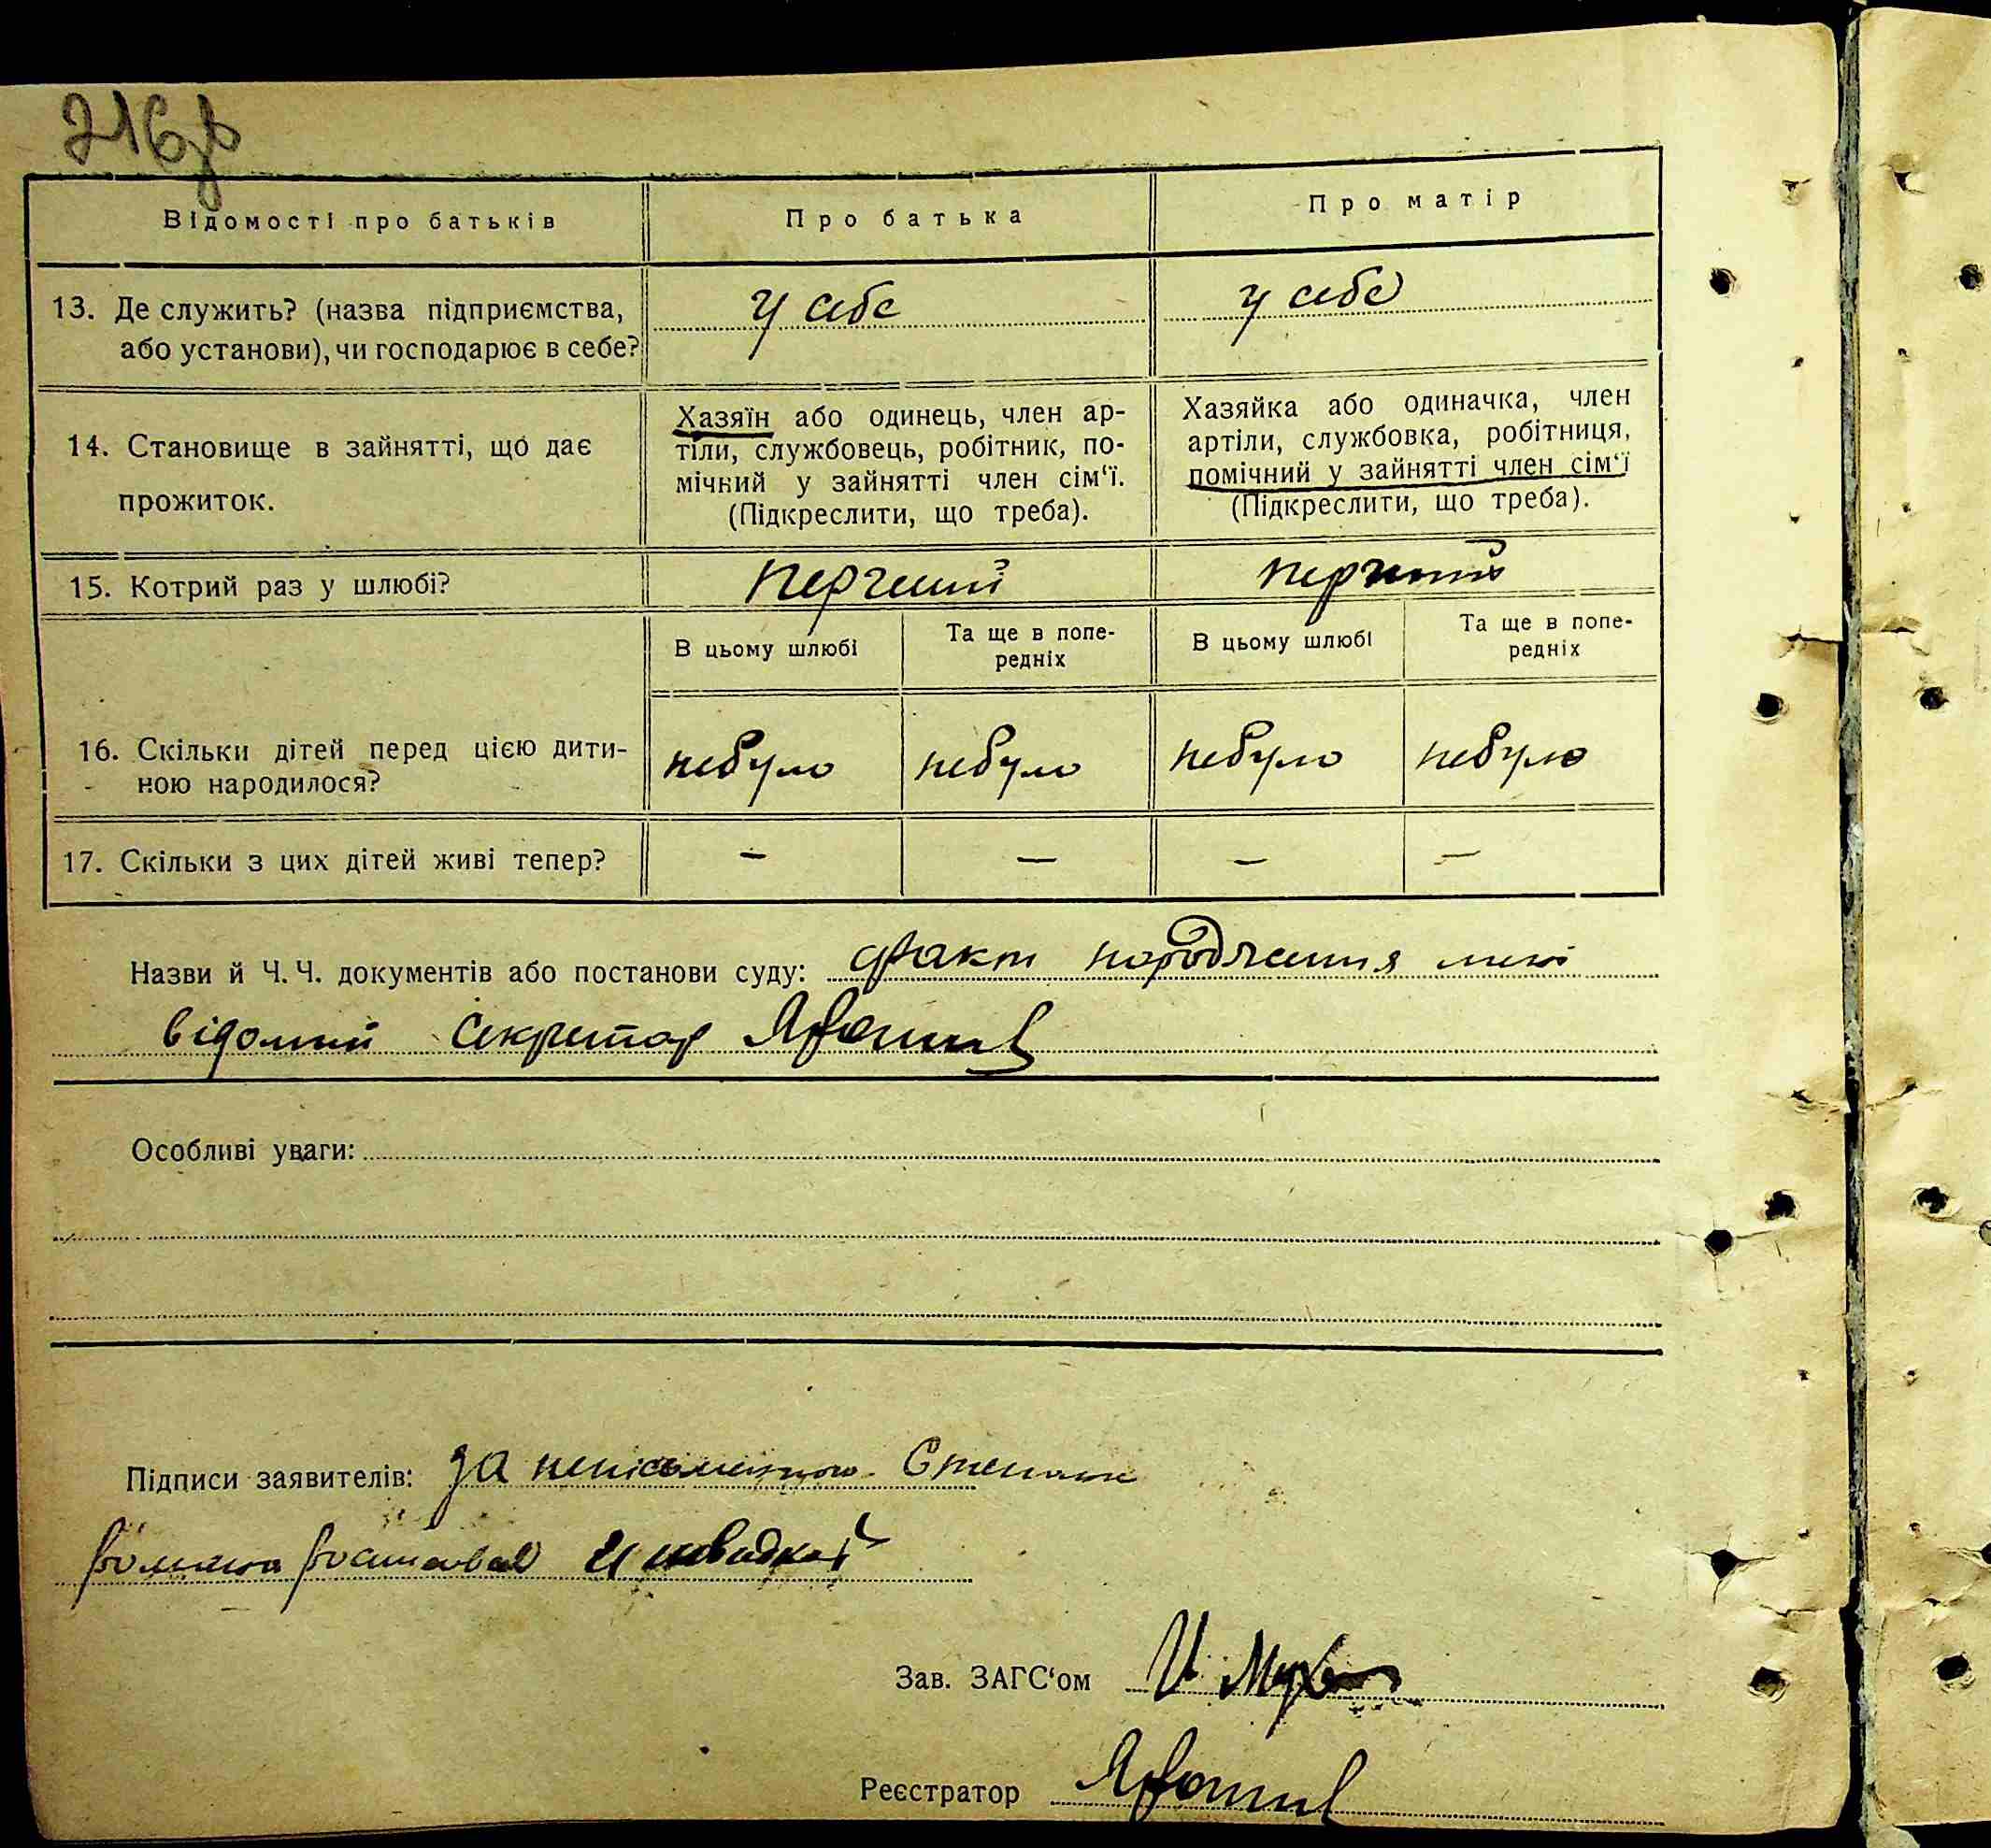 216
Відомості про батьків
Про батька
Про матір
13. Де служить? (назва підприємства,
або установи), чи господарює в себе?
у себе
у себе
14. Становище в зайнятті, що дає
прожиток.
Хазяїн або одинець, член ар-
тіли, службовець, робітник, по-
мічний у зайнятті член сім‘ї.
(Підкреслити, що треба).
Хазяйка або одиначка, член
артіли, службовка, робітниця,
помічний у зайнятті член сім‘ї
(Підкреслити, що треба).
15. Котрий раз у шлюбі?
перший
перший
В цьому шлюбі
Та ще в попе-
редніх
В цьому шлюбі
Та ще в попе-
редніх
16. Скільки дітей перед цією дити-
ною народилося?
небуло
небуло
небуло
небуло
17. Скільки з цих дітей живі тепер?
—
—
—
—
Назви й Ч. Ч. документів або постанови суду: факт народження мені
відомий секретар
Особливі уваги:
Підписи заявителів: за неписьменного
Зав. ЗАГС‘ом
Реєстратор